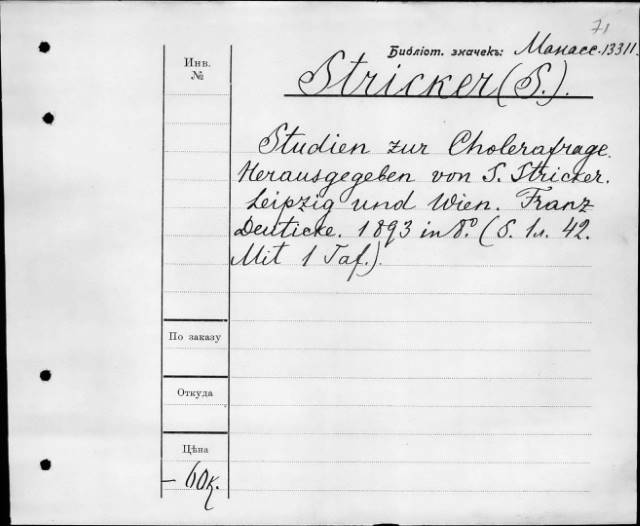 71
Библіот. значекъ: Манасс. 13311.
Stricker (S.).
Инв.
№
Studien zur Cholerafrage.
Herausgegeben von S. Stricker.
Leipzig und Wien. Franz
Deuticke. 1893 in 8º. (S. 1л. 42.
Mit 1 Taf.).
По заказу
Откуда
Цѣна
– 60к.